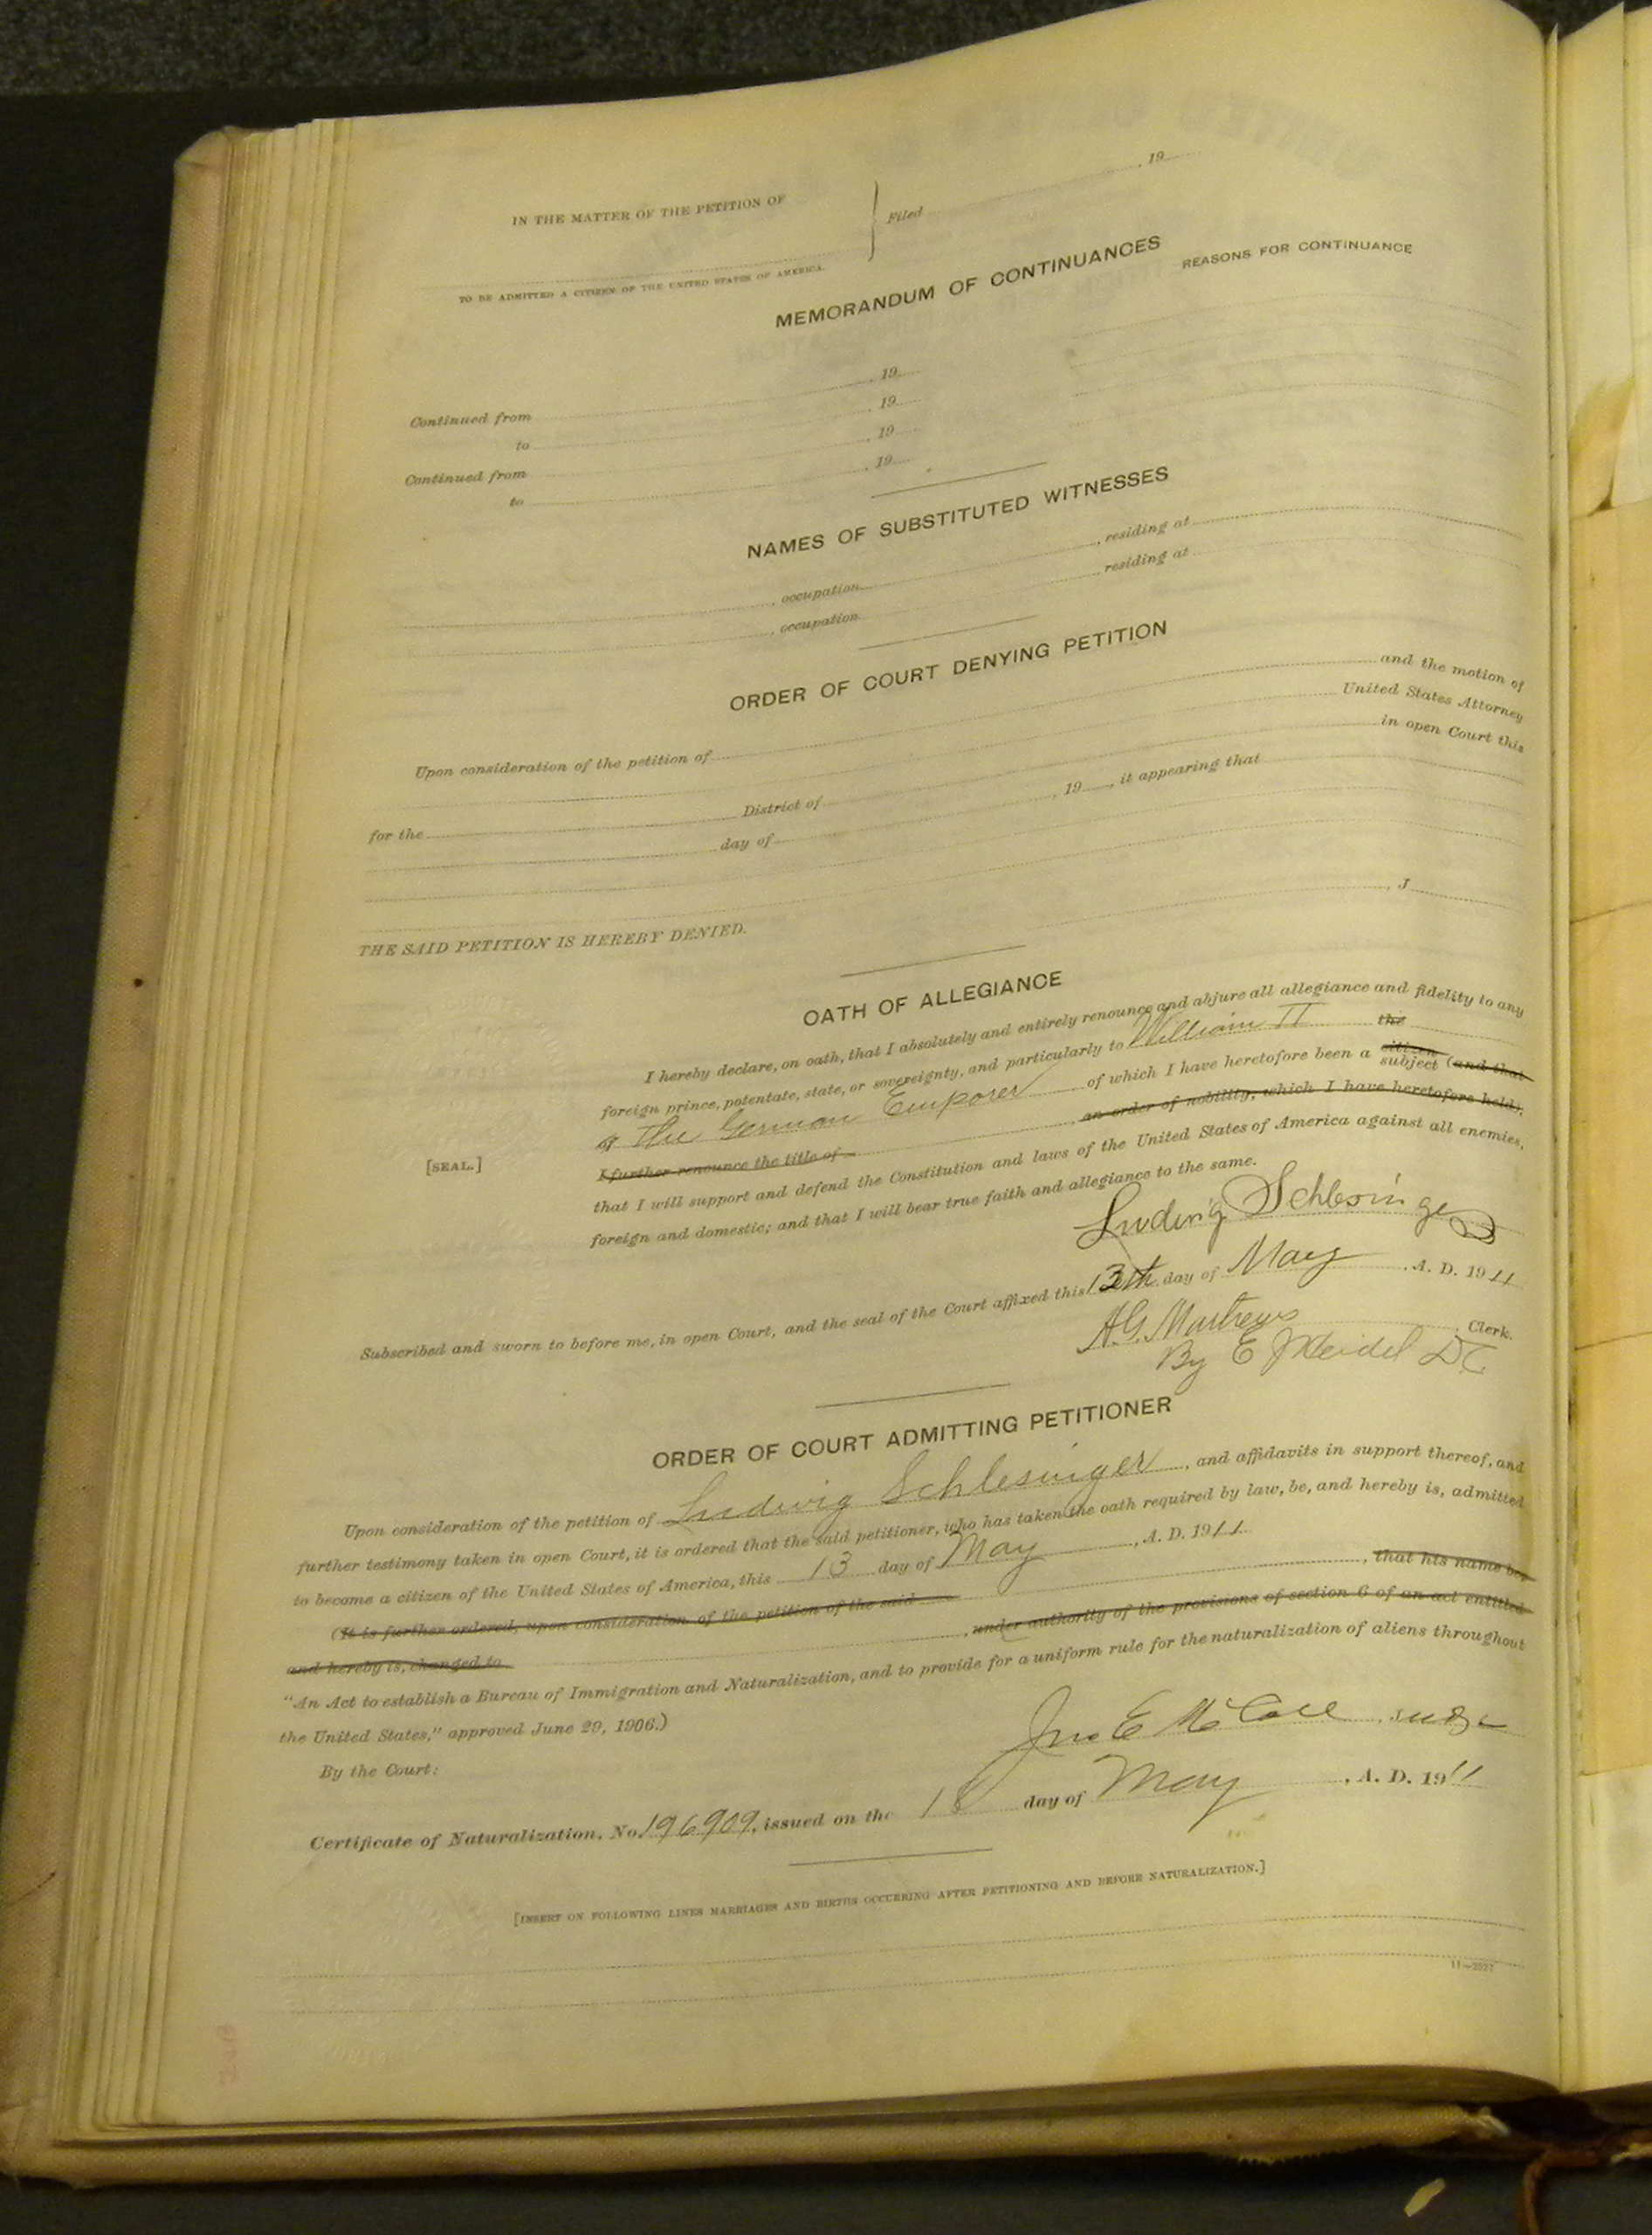 , 19
IN THE MATTER OF THE PETITION OF
Filed
TO BE ADMITTED A CITIZEN OF THE UNITED STATES OF AMERICA.
MEMORANDUM OF CONTINUANCES
REASONS FOR CONTINUANCE
Continued from , 19
to , 19
Continued from , 19
to , 19
NAMES OF SUBSTITUTED WITNESSES
, occupation , residing at
, occupation , residing at
ORDER OF COURT DENYING PETITION
Upon consideration of the petition of and the motion of
United States Attorney
for the District of in open Court this
day of , 19 , it appearing that
THE SAID PETITION IS HEREBY DENIED.
, J
OATH OF ALLEGIANCE
I hereby declare, on oath, that I absolutely and entirely renounce and abjure all allegiance and fidelity to any
foreign prince, potentate, state, or sovereignty, and particularly to William II the
The German Emporer of which I have heretofore been a citizen subject (and that
I further renounce the title of , an order of nobility, which I have heretofore held);
that I will support and defend the Constitution and laws of the United States of America against all enemies,
foreign and domestic; and that I will bear true faith and allegiance to the same.
[SEAL.]
Ludwig Schlesinger
Subscribed and sworn to before me, in open Court, and the seal of the Court affixed this 13th day of May , A. D. 1911
A.G. Mathews , Clerk.
By E J Heidel DC
ORDER OF COURT ADMITTING PETITIONER
Upon consideration of the petition of Ludwig Schlesinger , and affidavits in support thereof, and
further testimony taken in open Court, it is ordered that the said petitioner, who has taken the oath required by law, be, and hereby is, admitted
to become a citizen of the United States of America, this 13 day of May , A. D. 1911
(It is further ordered, upon consideration of the petition of the said , that his name be,
and hereby is, changed to , under authority of the provisions of section 6 of an act entitled
"An Act to establish a Bureau of Immigration and Naturalization, and to provide for a uniform rule for the naturalization of aliens throughout
the United States," approved June 29, 1906.)
By the Court:
Jno E McCall , Judge
Certificate of Naturalization, No 196909, issued on the 18 day of May , A. D. 1911
[INSERT ON FOLLOWING LINES MARRIAGES AND BIRTHS OCCURRING AFTER PETITIONING AND BEFORE NATURALIZATION.]
11—2927